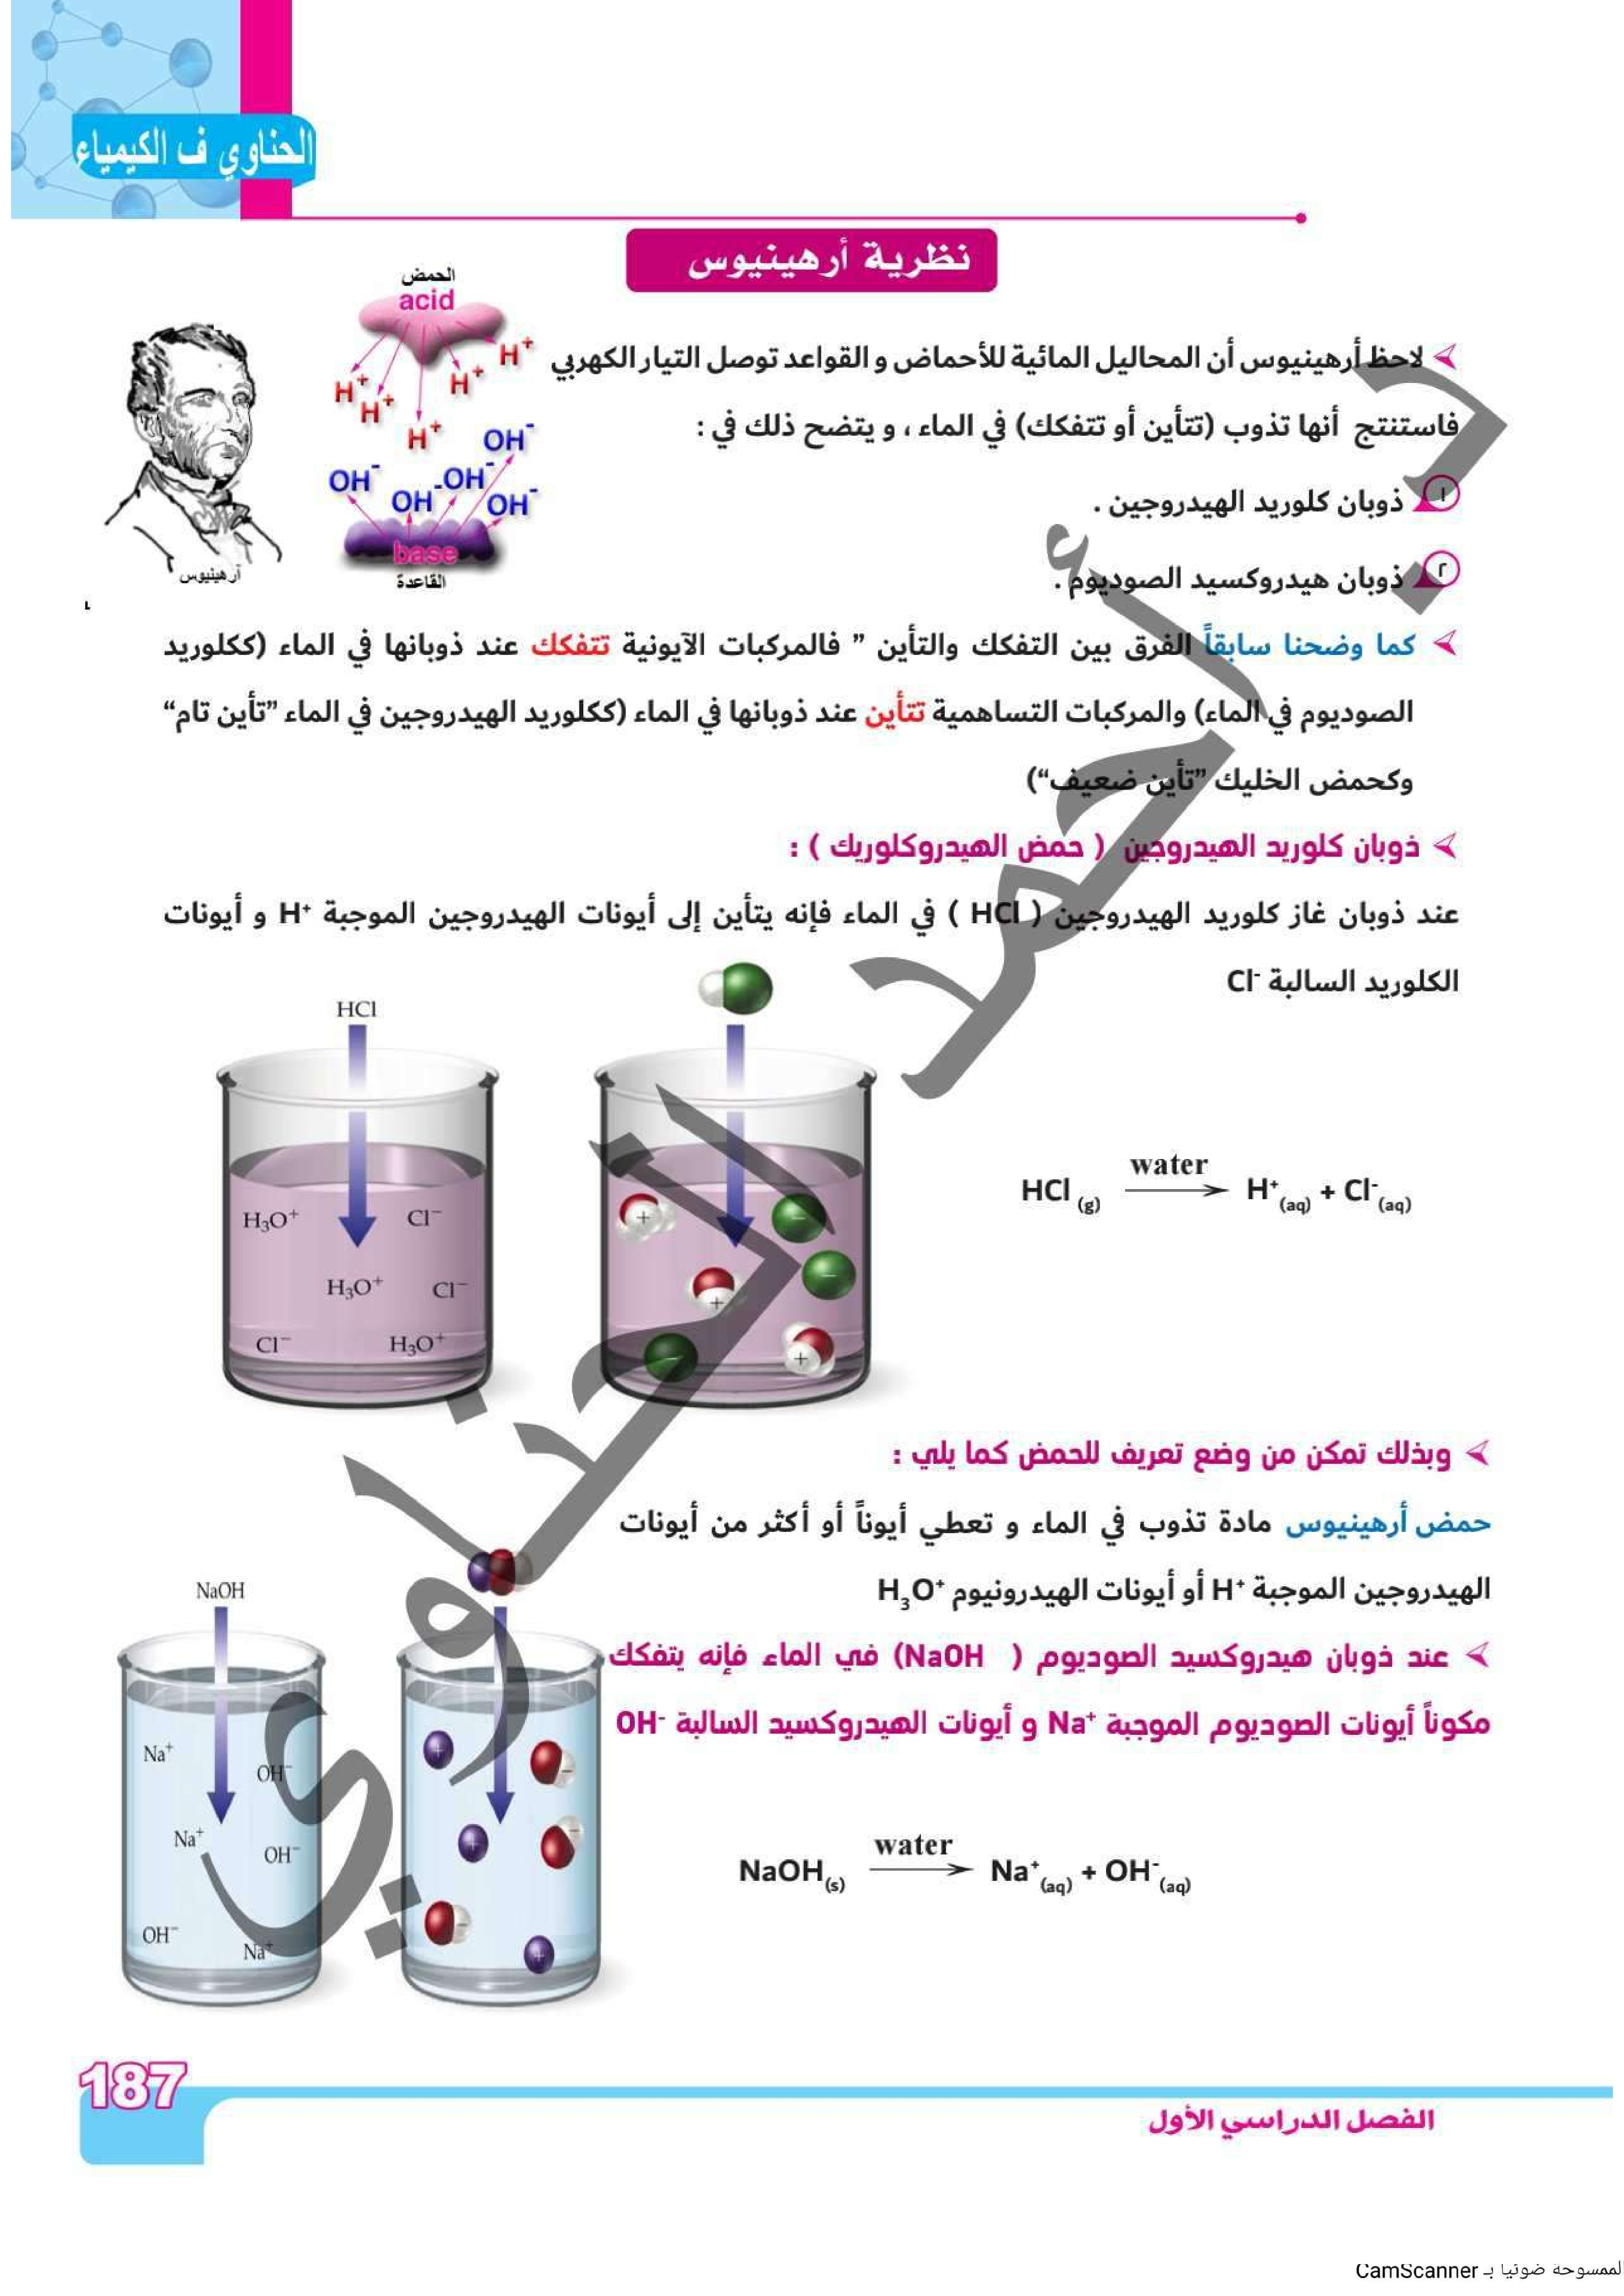 الحناوي ف الكيمياء
نظرية أرهينيوس
لاحظ أرهينيوس أن المحاليل المائية للأحماض و القواعد توصل التيار الكهربي
فاستنتج أنها تذوب (تتأين أو تتفكك) في الماء ، و يتضح ذلك في :
١ ذوبان كلوريد الهيدروجين .
٢ ذوبان هيدروكسيد الصوديوم .
الحمض
acid
H⁺
H⁺ H⁺
H⁺
H⁺ OH⁻
OH⁻ OH⁻
OH⁻ OH⁻
base
القاعدة
أرهينيوس
كما وضحنا سابقاً الفرق بين التفكك والتأين ” فالمركبات الآيونية تتفكك عند ذوبانها في الماء (ككلوريد
الصوديوم في الماء) والمركبات التساهمية تتأين عند ذوبانها في الماء (ككلوريد الهيدروجين في الماء ”تأين تام“
وكحمض الخليك ”تأين ضعيف“)
ذوبان كلوريد الهيدروجين ( حمض الهيدروكلوريك ) :
عند ذوبان غاز كلوريد الهيدروجين ( HCl ) في الماء فإنه يتأين إلى أيونات الهيدروجين الموجبة H⁺ و أيونات
الكلوريد السالبة Cl⁻
HCl
H₃O⁺ Cl⁻
H₃O⁺ Cl⁻
Cl⁻ H₃O⁺
water
HCl (g) ⟶ H⁺(aq) + Cl⁻(aq)
وبذلك تمكن من وضع تعريف للحمض كما يلي :
حمض أرهينيوس مادة تذوب في الماء و تعطي أيوناً أو أكثر من أيونات
الهيدروجين الموجبة H⁺ أو أيونات الهيدرونيوم H₃O⁺
عند ذوبان هيدروكسيد الصوديوم ( NaOH) في الماء فإنه يتفكك
مكوناً أيونات الصوديوم الموجبة Na⁺ و أيونات الهيدروكسيد السالبة OH⁻
NaOH
Na⁺
OH⁻
Na⁺
OH⁻
OH⁻
Na⁺
water
NaOH(s) ⟶ Na⁺(aq) + OH⁻(aq)
د. أحمد الحناوي
187
الفصل الدراسي الأول
لممسوحة ضوئيا بـ CamScanner